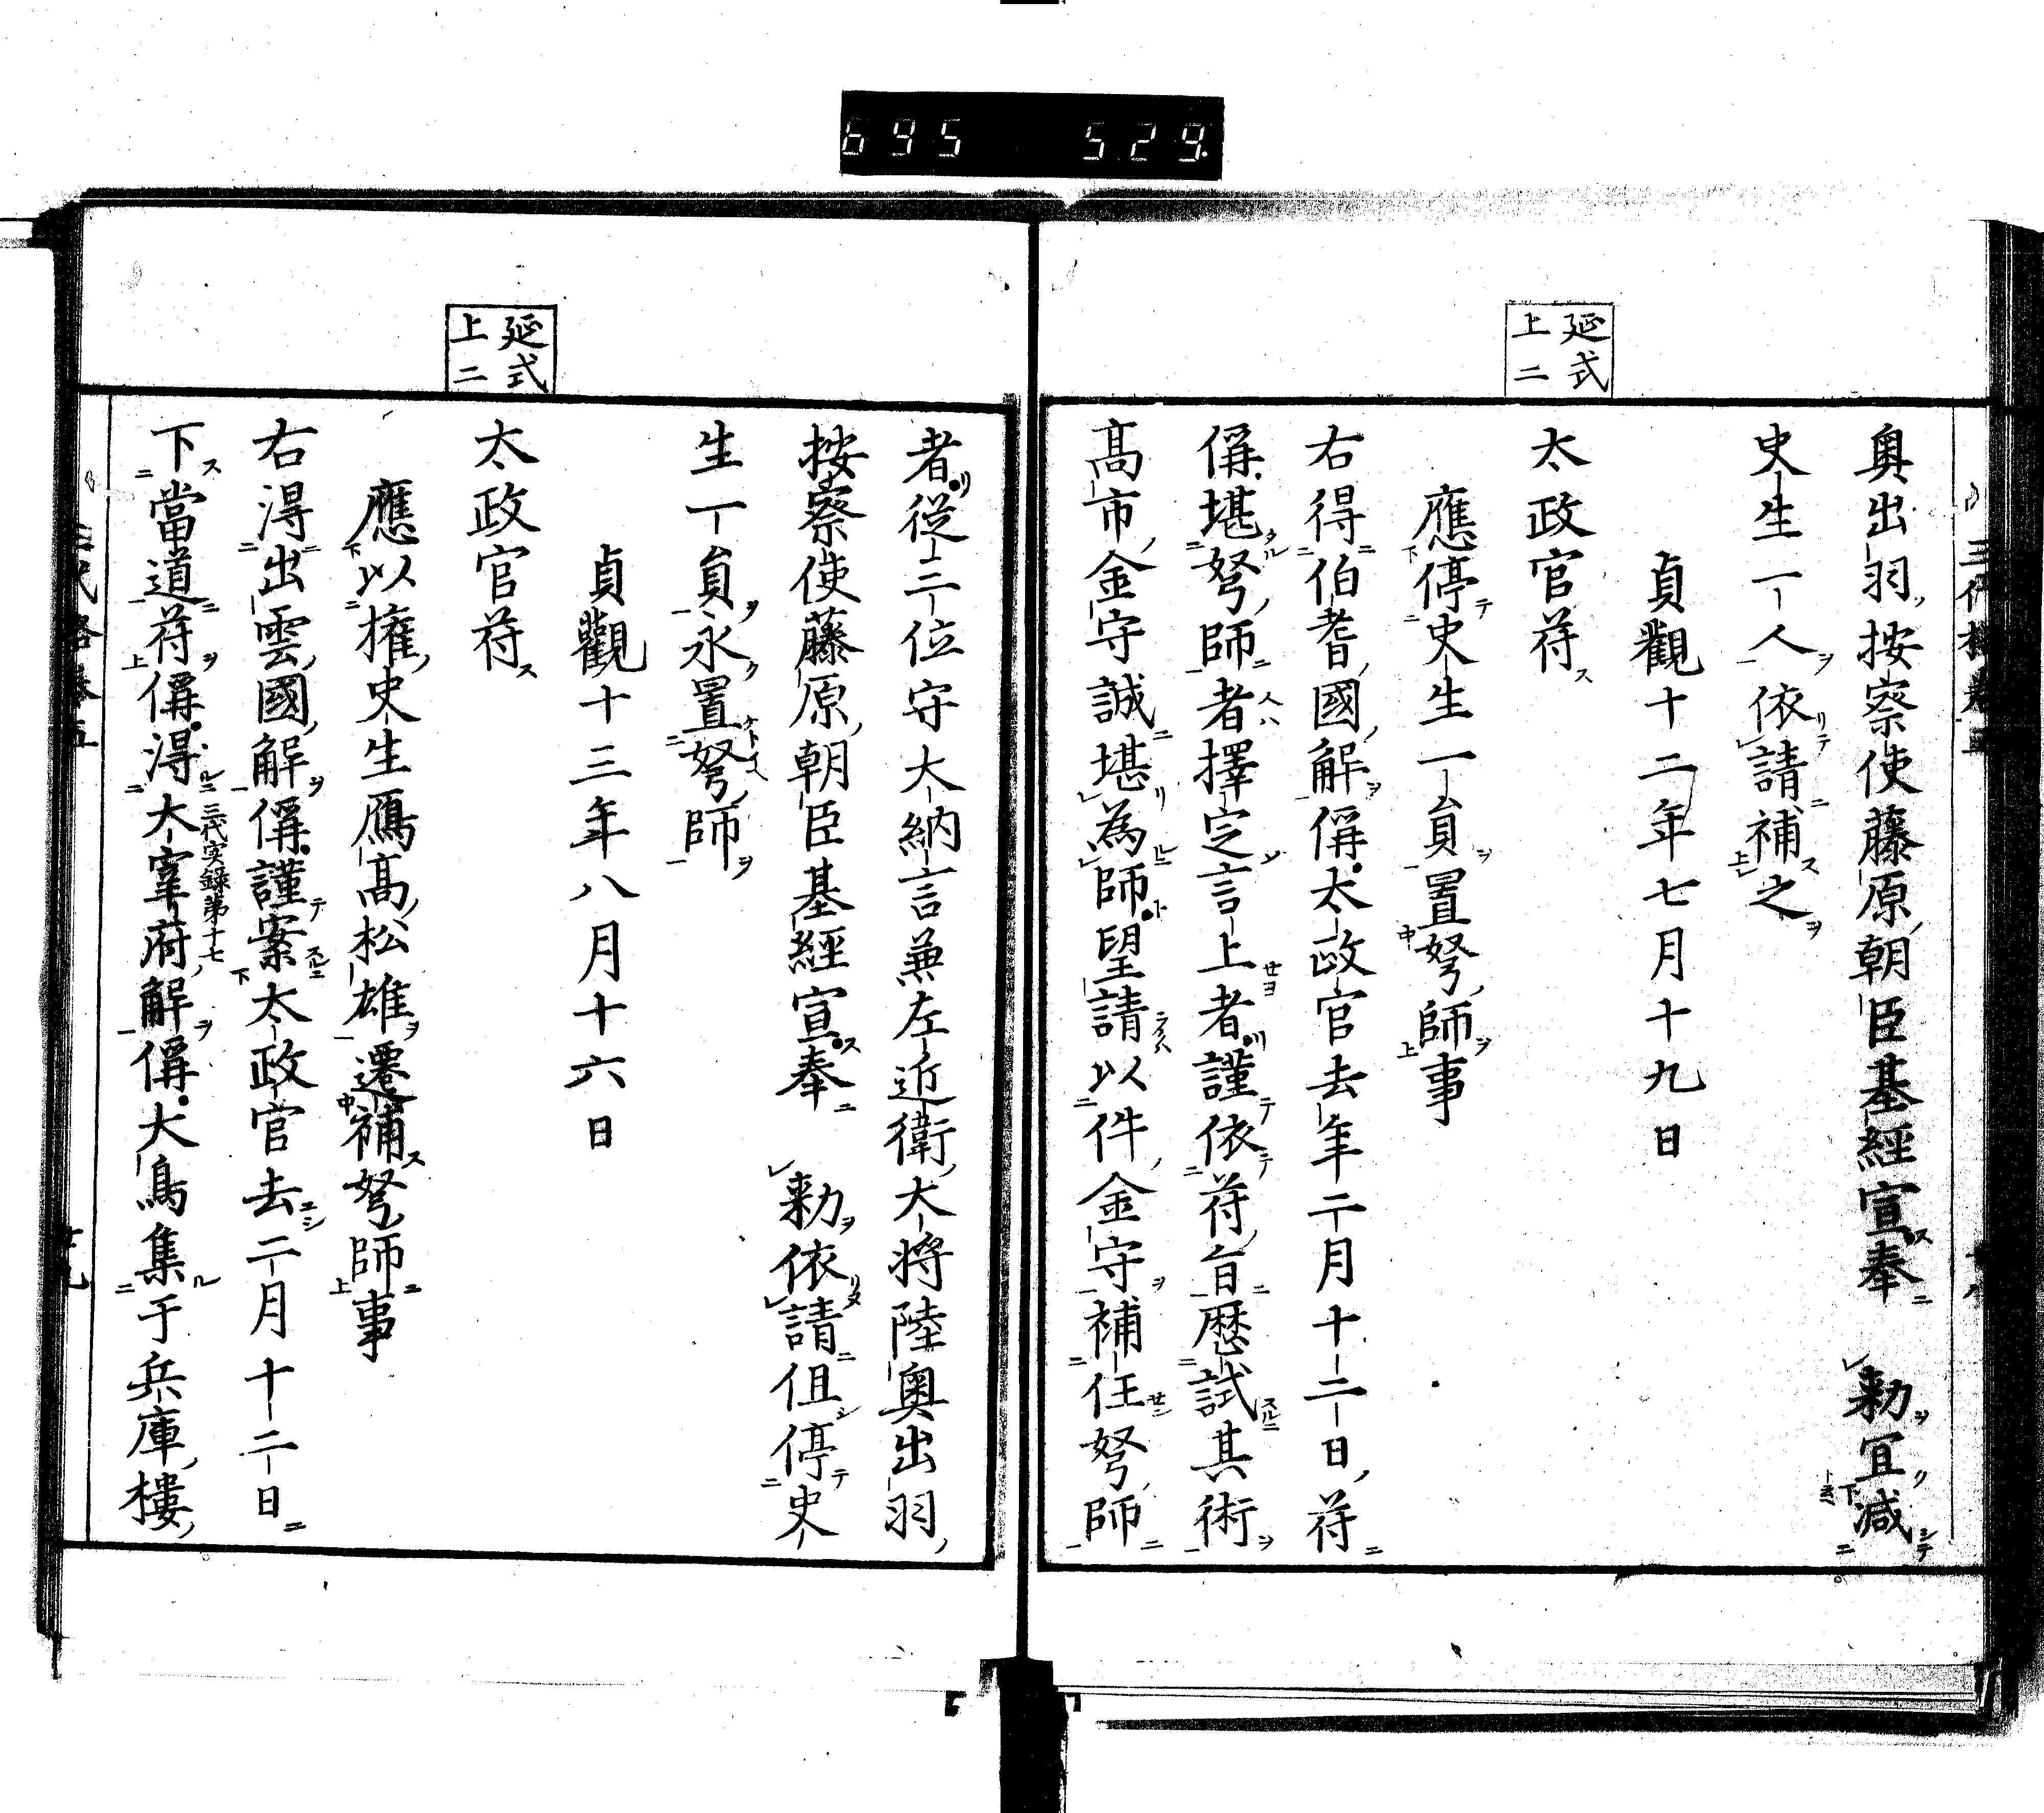 695 529
延式
上二
奧出羽按察使藤原朝臣基經宣奉　勅宜減
史生一人依請補之
貞觀十二年七月十九日
太政官符
應停史生一員置弩師事
右得伯耆國解偁太政官去年二月十二日符
偁堪弩師者擇定言上者謹依符旨歷試其術
髙市金守誠堪為師望請以件金守補任弩師
延式
上二
者從三位守大納言兼左近衛大將陸奧出羽
按察使藤原朝臣基經宣奉　勅依請但停史
生一員永置弩師
貞觀十三年八月十六日
太政官符
應以權史生鴈髙松雄遷補弩師事
右得出雲國解偁謹案太政官去二月十二日
三代实録第十七
下當道符偁得大宰府解偁大鳥集于兵庫樓